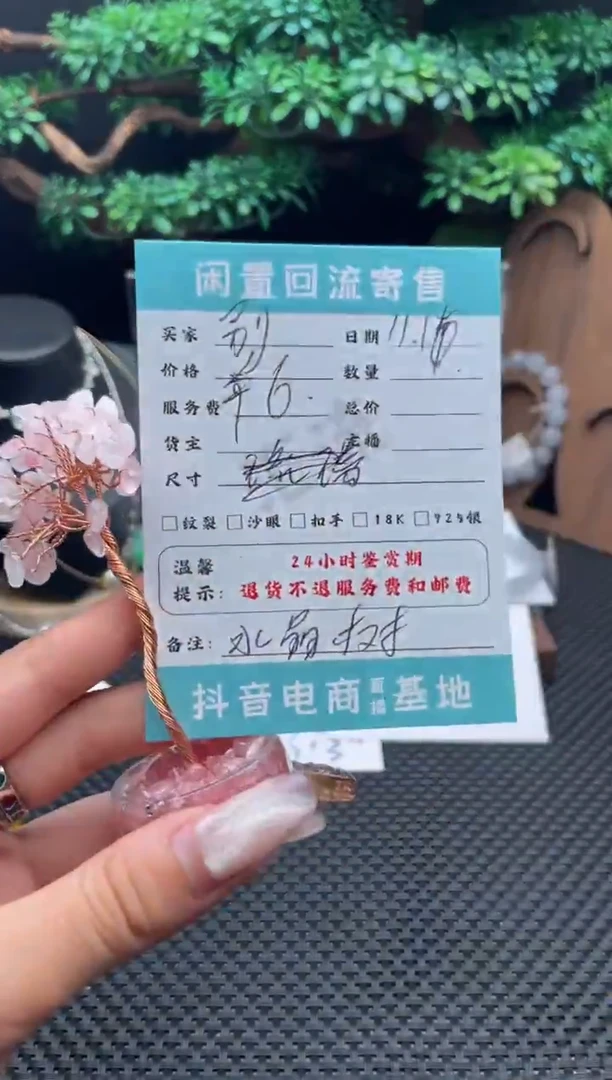 闲置回流寄售
买家 别 日期 11.16
价格 数量
服务费 ¥6. 总价
货主 主播
尺寸
纹裂 沙眼 扣手 18K 925银
温馨 24小时鉴赏期
提示: 退货不退服务费和邮费
备注: 水晶树
抖音电商直播基地